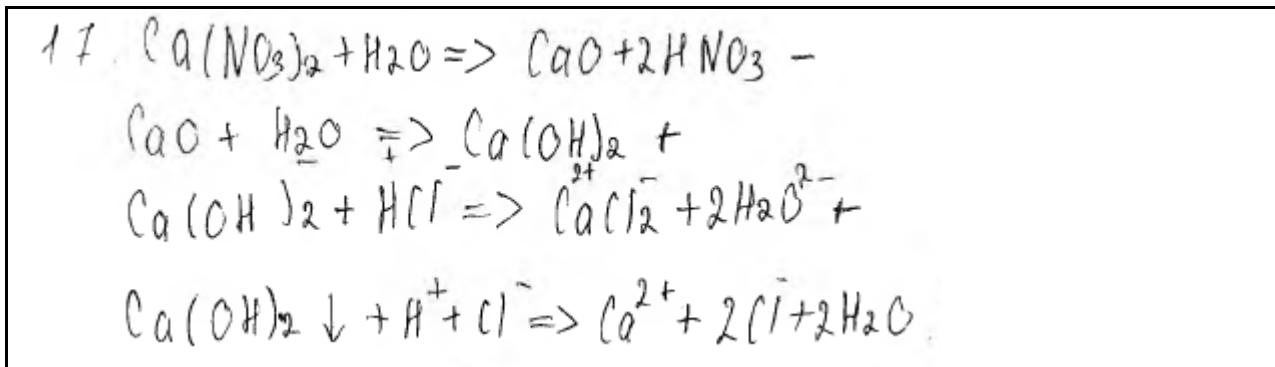 17. Ca(NO₃)₂ + H₂O => CaO + 2HNO₃ -
CaO + H₂O => Ca(OH)₂ +
Ca(OH)₂ + HCl⁻ => Ca²⁺Cl₂⁻ + 2H₂O²⁻ +
Ca(OH)₂ ↓ + H⁺ + Cl⁻ => Ca²⁺ + 2Cl⁻ + 2H₂O